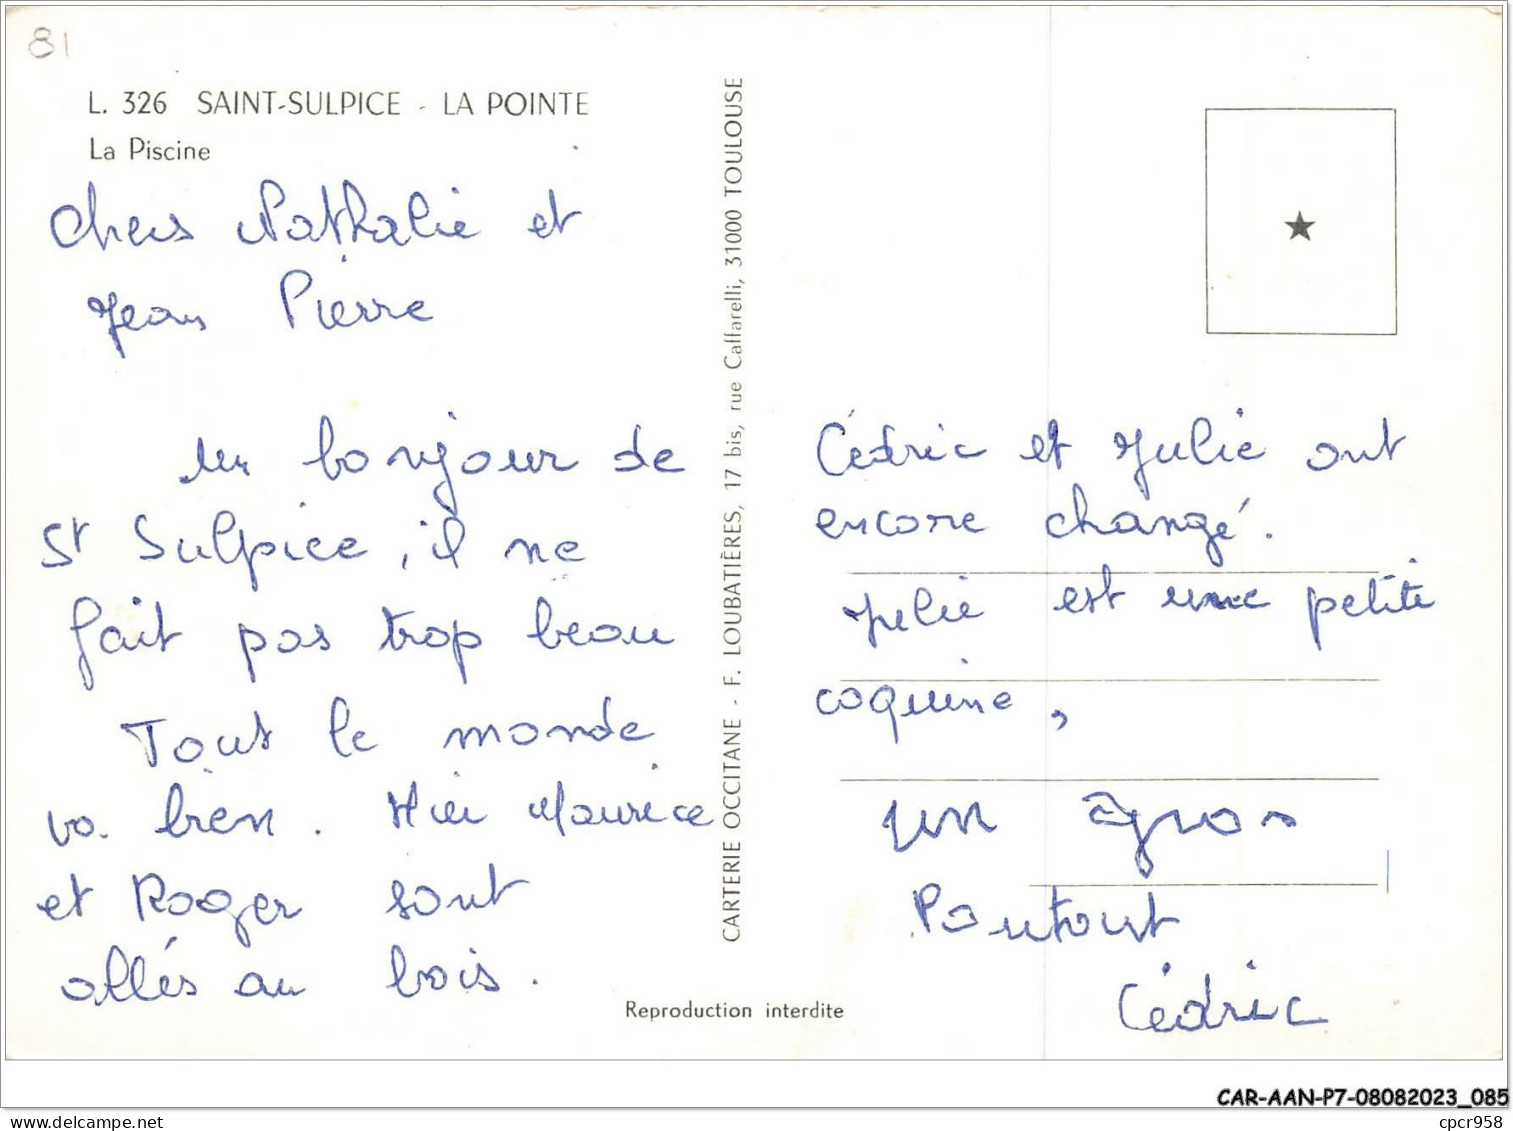 81
L. 326 SAINT-SULPICE - LA POINTE
La Piscine
Chers Nathalie et
Jean Pierre
un bonjour de
St Sulpice, il ne
fait pas trop beau
Tout le monde
va bien. Hier Maurice
et Roger sont
allés au bois.
CARTERIE OCCITANE - F. LOUBATIÈRES, 17 bis, rue Caffarelli, 31000 TOULOUSE
Reproduction interdite
Cédric et Julie ont
encore changé.
Julie est une petite
coquine,
un gros
Poutout
Cédric
CAR-AAN-P7-08082023_085
delcampe.net
cpcr958